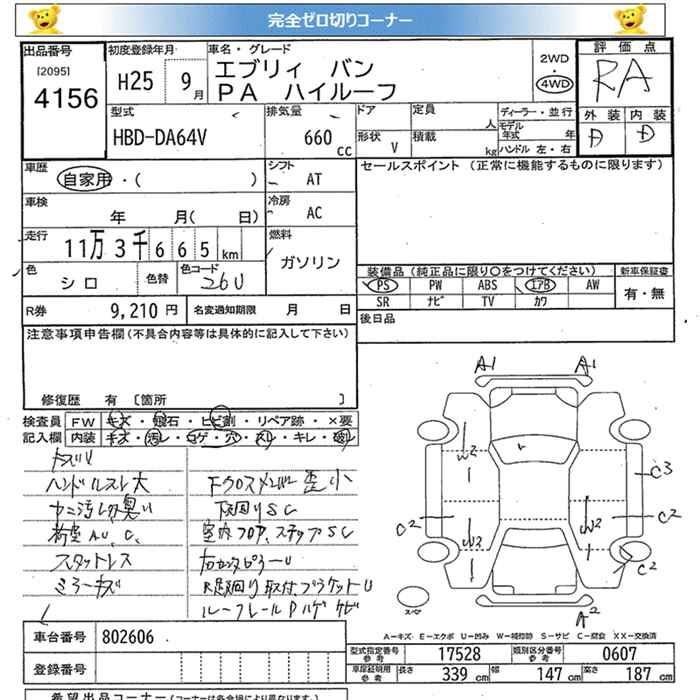 完全ゼロ切りコーナー
出品番号 初度登録年月 車名・グレード 評価点
[2095] H25 9月 エブリィ バン 2WD RA
4156 PA ハイルーフ 4WD
型式 排気量 ドア 定員 人 ディーラー・並行 外装 内装
HBD-DA64V 660 cc 形状 V 積載 kg モデル年式 年 ハンドル 左・右 D
車歴 シフト セールスポイント (正常に機能するものに限ります)
自家用・( ) AT
車検 冷房
年 月( 日) AC
走行 燃料
11万3千665km ガソリン
色 色替 色コード 装備品(純正品に限り○をつけてください) 新車保証書
シロ 26U PS PW ABS エアB AW 有・無
R券 9,210円 名変通知期限 月 日 SR ナビ TV カワ
注意事項申告欄(不具合内容等は具体的に記入して下さい) 後日品
修復歴 有 [箇所 ]
検査員 FW キズ・飛石・ヒビ割・リペア跡・×要
記入欄 内装 キズ・汚レ・コゲ・穴・スレ・キレ・
ハンドルスレ大
スタットレス
ミラーキズ
下廻りSC
室内フロア、ステップSC
A1 A1
W2 C3
C2 W2 C2
W3 C2
A2
A-キズ E-エクボ U-凹み W-補修跡 S-サビ C-腐食 XX-交換済
車台番号 802606
型式指定番号 参考 17528 類別区分番号 参考 0607
登録番号
車庫証明用 参考 長さ 339cm 幅 147cm 高さ 187cm
希望出品コーナー